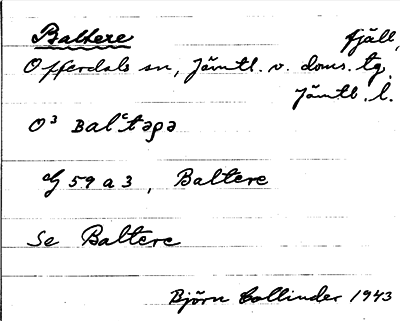 Baltere fjäll,
Offerdals sn, Jämtl. v. doms. tg,
Jämtl. l.
O³ Balᶜtəρə
G 59 a 3, Baltere
Se Baltere
Björn Collinder 1943